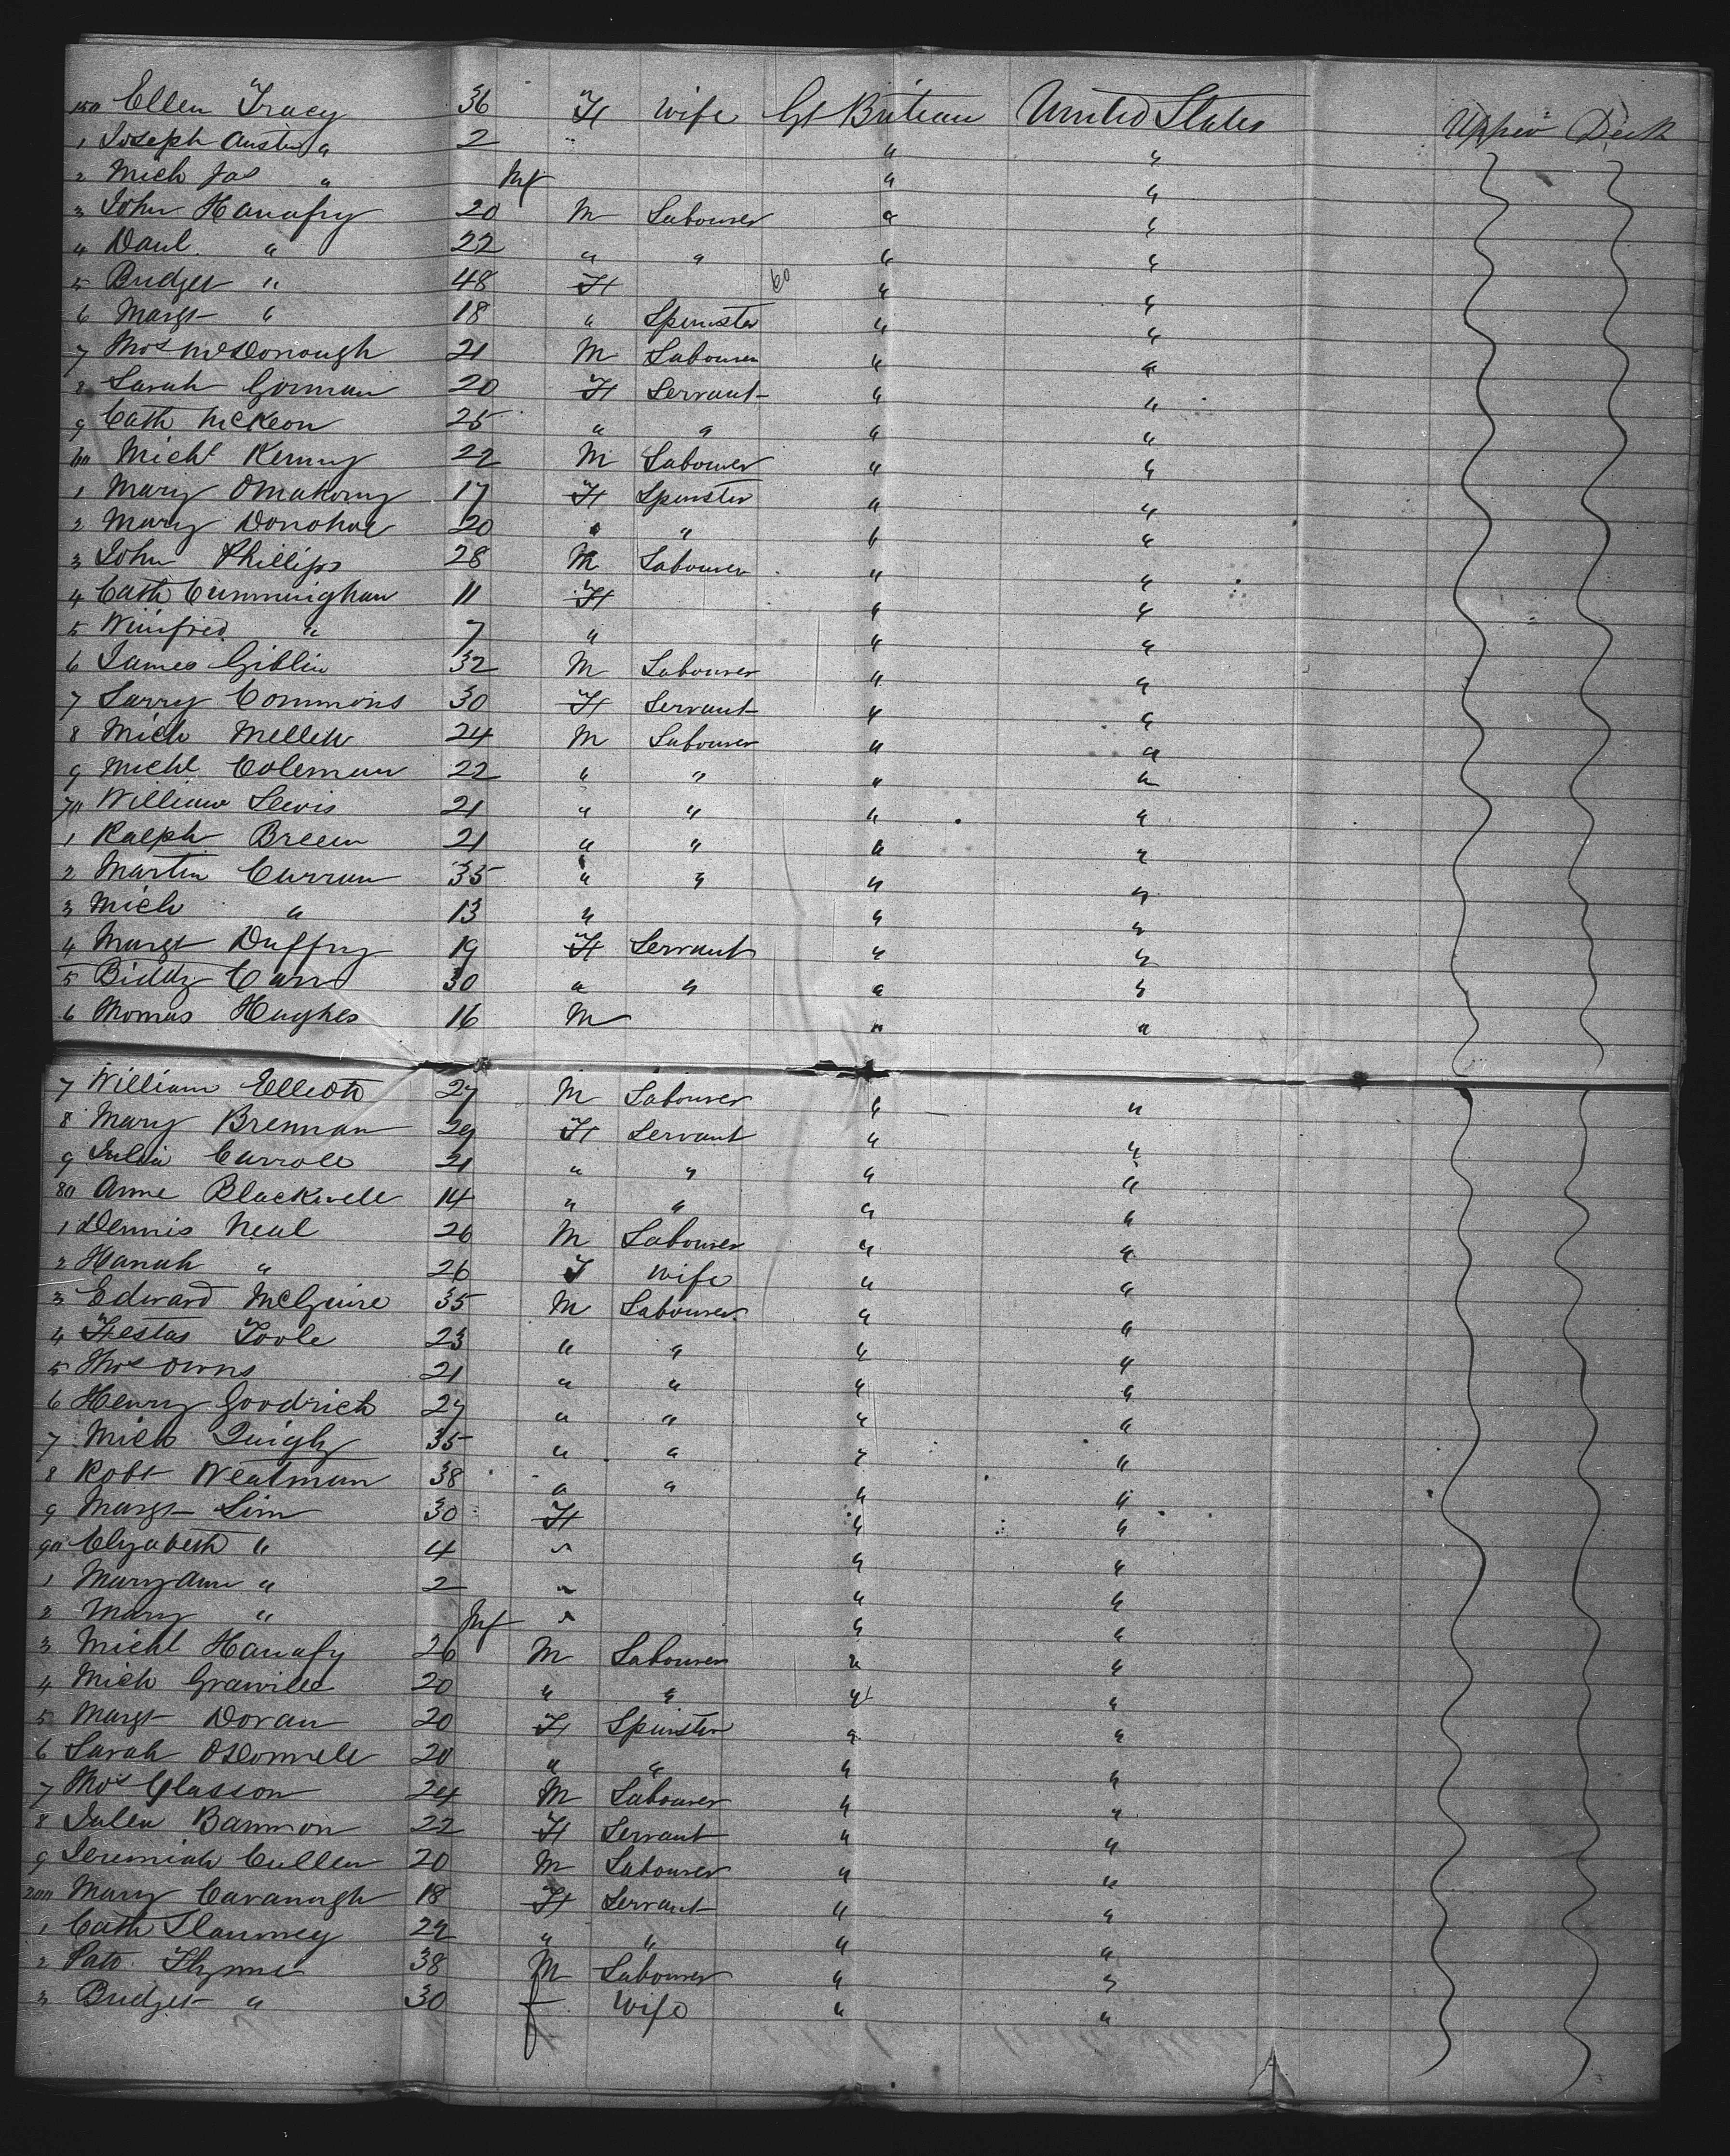 150 Ellen Tracy 36 F Wife Gt Britian United States Upper Deck
1 Joseph Austin " 2 " " "
2 Mich Jas " Inf " "
3 John Hanafry 20 M Labourer " "
4 Danl. " 22 " " " "
5 Bridget " 48 F 60 " "
6 Margt " 18 " Spinster " "
7 Thos McDonough 21 M Labourer " "
8 Sarah Gorman 20 F Servant " "
9 Cath McKeon 25 " " " "
60 Michl Kenny 22 M Labourer " "
1 Mary OMahony 17 F Spinster " "
2 Mary Donohoe 20 " " " "
3 John Phillips 28 M Labourer " "
4 Cath Cunningham 11 F " "
5 Winifred " 7 " " "
6 James Giblin 32 M Labourer " "
7 Sarry Commons 30 F Servant " "
8 Mich Mellew 24 M Labourer " "
9 Michl Coleman 22 " " " "
70 William Lewis 21 " " " "
1 Ralph Breen 21 " " " "
2 Martin Curran 35 " " " "
3 Mich " 13 " " "
4 Margt Duffry 19 F Servant " "
5 Biddy Carr 30 " " " "
6 Thomas Hughes 16 M " "
7 William Elliott 27 M Labourer " "
8 Mary Brennan 29 F Servant " "
9 Julia Carroll 21 " " " "
80 Anne Blackwell 14 " " " "
1 Dennis Neal 26 M Labourer " "
2 Hanah " 26 F Wife " "
3 Edward McGuire 35 M Labourer " "
4 Festas Toole 23 " " " "
5 Thos Owns 21 " " " "
6 Henry Goodrich 27 " " " "
7 Mich Quigly 35 " " " "
8 Robt Weatman 38 " " " "
9 Margt Sim 30 F " "
90 Elizabeth " 4 " " "
1 Mary Ann " 2 " " "
2 Mary " Inf " " "
3 Michl Hanafy 26 M Labourer " "
4 Mich 20 " " " "
5 Margt Doran 20 F Spinster " "
6 Sarah ODonnell 20 " " " "
7 Thos Glasson 24 M Labourer " "
8 Julea Bannon 22 F Servant " "
9 Jeremiah Cullen 20 M Labourer " "
200 Mary Cavanagh 18 F Servant " "
1 Cath 22 " " " "
2 Patk. Flynne 38 M Labourer " "
3 Bridget " 30 f Wife " "